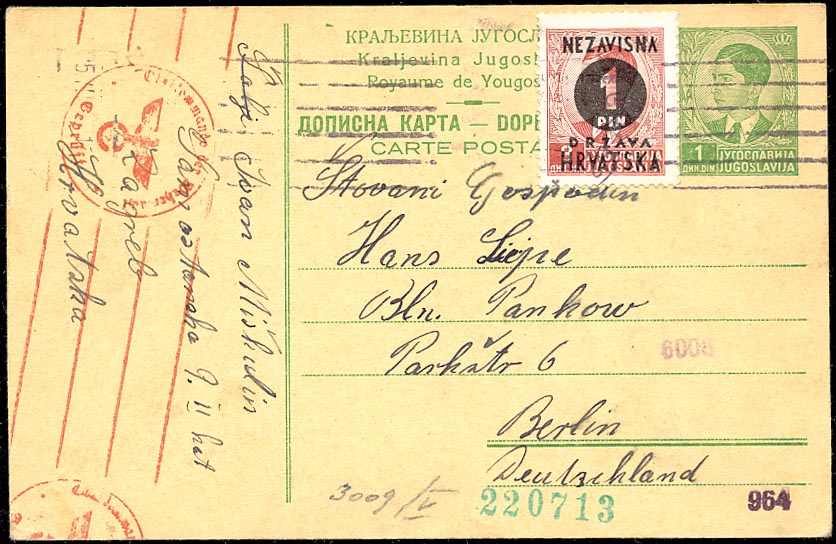 КРАЉЕВИНА ЈУГОСЛ
Kraljevina Jugosl
Royaume de Yougos
ДОПИСНА КАРТА — DOPI
CARTE POSTA
NEZAVISNA
1
DIN
DRŽAVA
HRVATSKA
1
ДИН. DIN
ЈУГОСЛАВИЈА
JUGOSLAVIJA
Štovani Gospodin
Hans Liepe
Bln. Pankow
Parkštr 6
Berlin
Deutschland
6008
3009/V
220713
964
Šalje Ivan Miškulin
Samostanska 9. II kat
Zagreb
Hrvatska
Geprüft